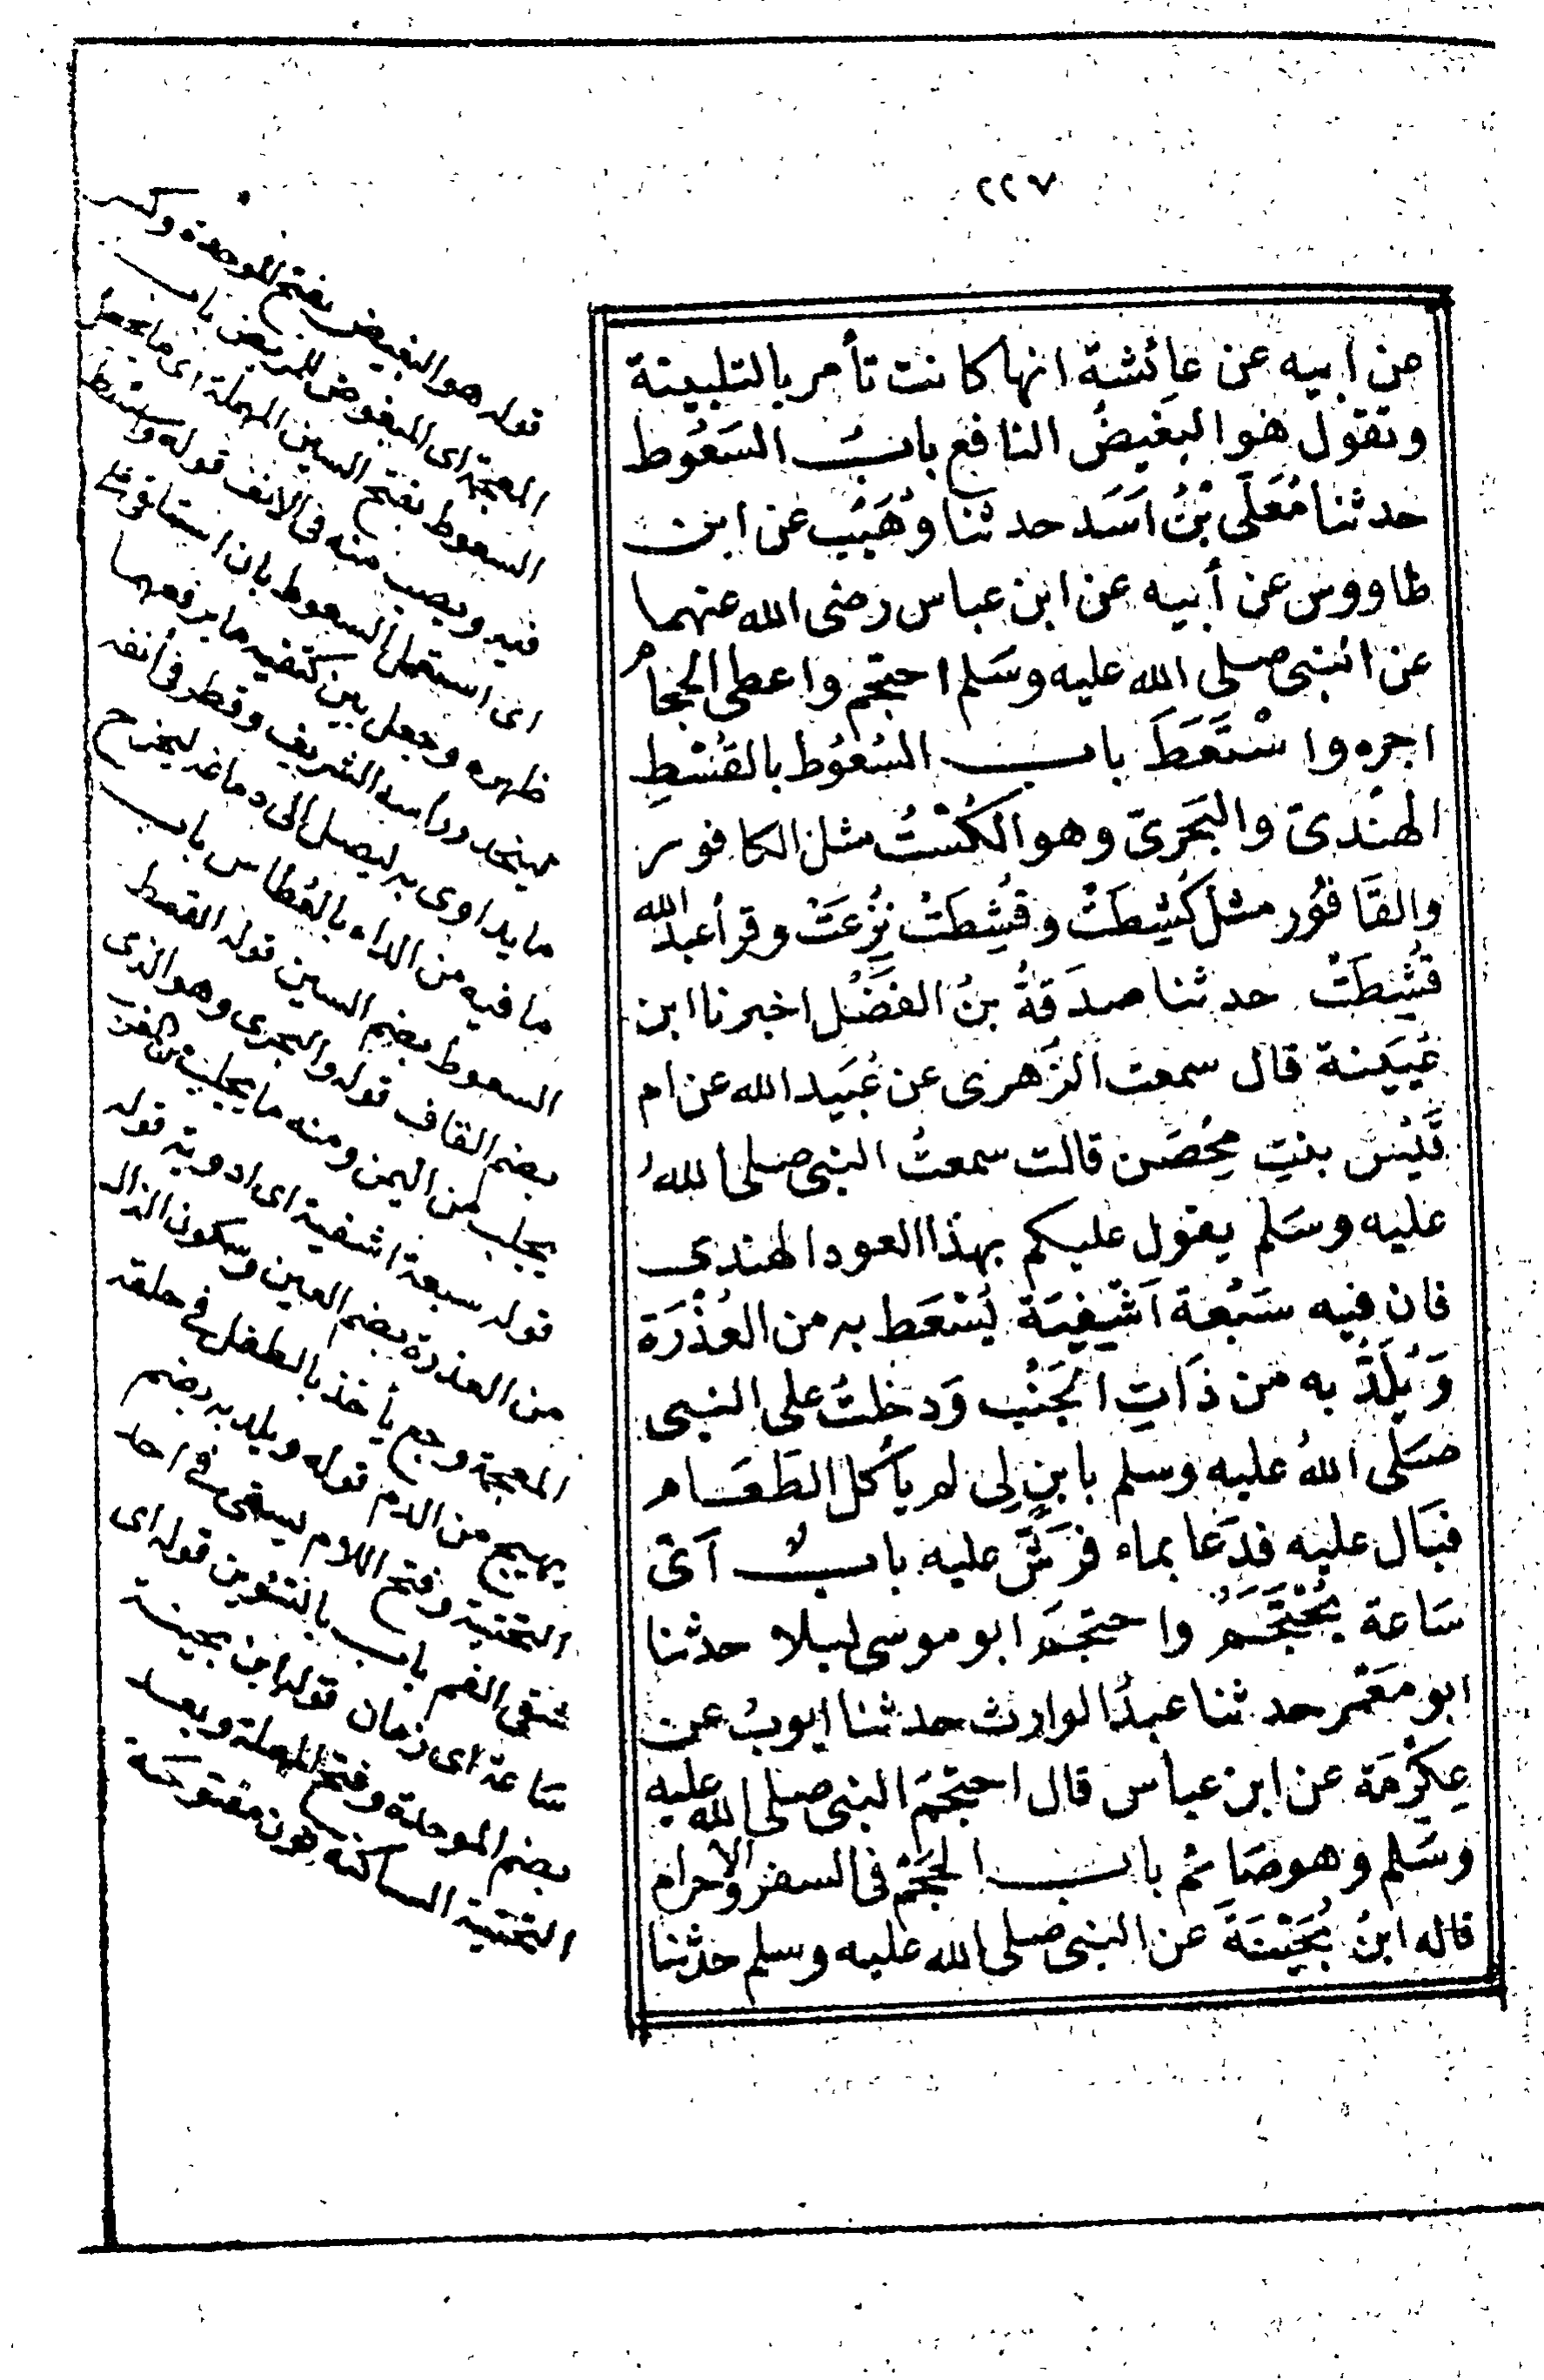 ٢٢٧
عن أبيه عن عائشة انها كانت تأمر بالتلبينة
وتقول هو البَغيضُ النافع بابُ السَعُوط
حدثنا مُعَلَّى بْنُ اَسَد حدثنا وُهَيْب عن ابن
طاووس عن أبيه عن ابن عباس رضى الله عنهما
عن النبى صلى الله عليه وسَلم احتجم واعطى الحجام
اجره واسْتَعَطَ باب السُعُوط بالقُسْطِ
الهنْدىّ والبَحَرىّ وهو الكُسْتُ مثل الكافور
والقَافُور مثل كُشِطَتْ وقُشِطَتْ نُزِعَتْ وقرأ عبد الله
قُشِطَتْ حدثنا صدَقةُ بنُ الفَضْل اخبرنا ابن
عُيَيْنة قال سمعت الزُهرى عن عُبَيد الله عن ام
قَيْس بنتِ مِحْصَن قالت سمعتُ النبى صلى اللهُ
عليه وسَلم يقول عليكم بهذا العود الهندى
فان فيه سَبْعة اَشْفِيَة يُسْعَط به من العُذْرَة
وَيُلَدُّ به من ذَاتِ الجَنْب وَدخلتُ على النبى
صَلى اللهُ عليه وسلم بابنٍ لِى لم يأكُل الطَعَام
فبَال عليه فدَعَا بماء فرَشَّ عليه بابٌ اَىَّ
سَاعة يَحْتَجَمُ واحتجَمَ ابو موسى ليلا حدثنا
ابو مَعْمَر حدثنا عبدُ الوارث حدثنا ايوبُ عن
عِكْرِمَة عن ابن عباس قال احتَجَمَ النبى صلى الله عليه
وسَلم وهو صَائم باب الحَجْم فى السفر والاحرام
قاله ابنُ بُحَيْنَةَ عن النبى صلى الله عليه وسلم حدثنا
قوله هو البغيض بفتح الموحدة وكسر
المعجمة اى المبغوض للمريض باب
السعوط بفتح السين المهملة اى ما يجعل
فيه ويصب منه فى الانف قوله واستعط
اى استعمل السعوط بان استلقى على
ظهره وجعل بين كتفيه ما يرفعهما
لينحدر رأسه الشريف وقطر فى أنفه
ما يداوى به ليصل الى دماغه ليخرج
ما فيه من الداء بالعُطاس باب
السعوط بضم السين قوله القسط
بضم القاف قوله والبحرى وهو الذى
يجلب من اليمن ومنه ما يجلب من المغرب
قوله سبعة اشفية اى ادوية قوله
من العذرة بضم العين وسكون الذال
المعجمة وجع يأخذ بالطفل فى حلقه
يهيج من الدم قوله ويلد به بضم
التحتية وفتح اللام يسقى فى احد
شقى الفم باب بالتنوين قوله اى
ساعة اى زمان قوله ابن بحينة
بضم الموحدة وفتح المهملة وبعد
التحتية الساكنة نون مفتوحة